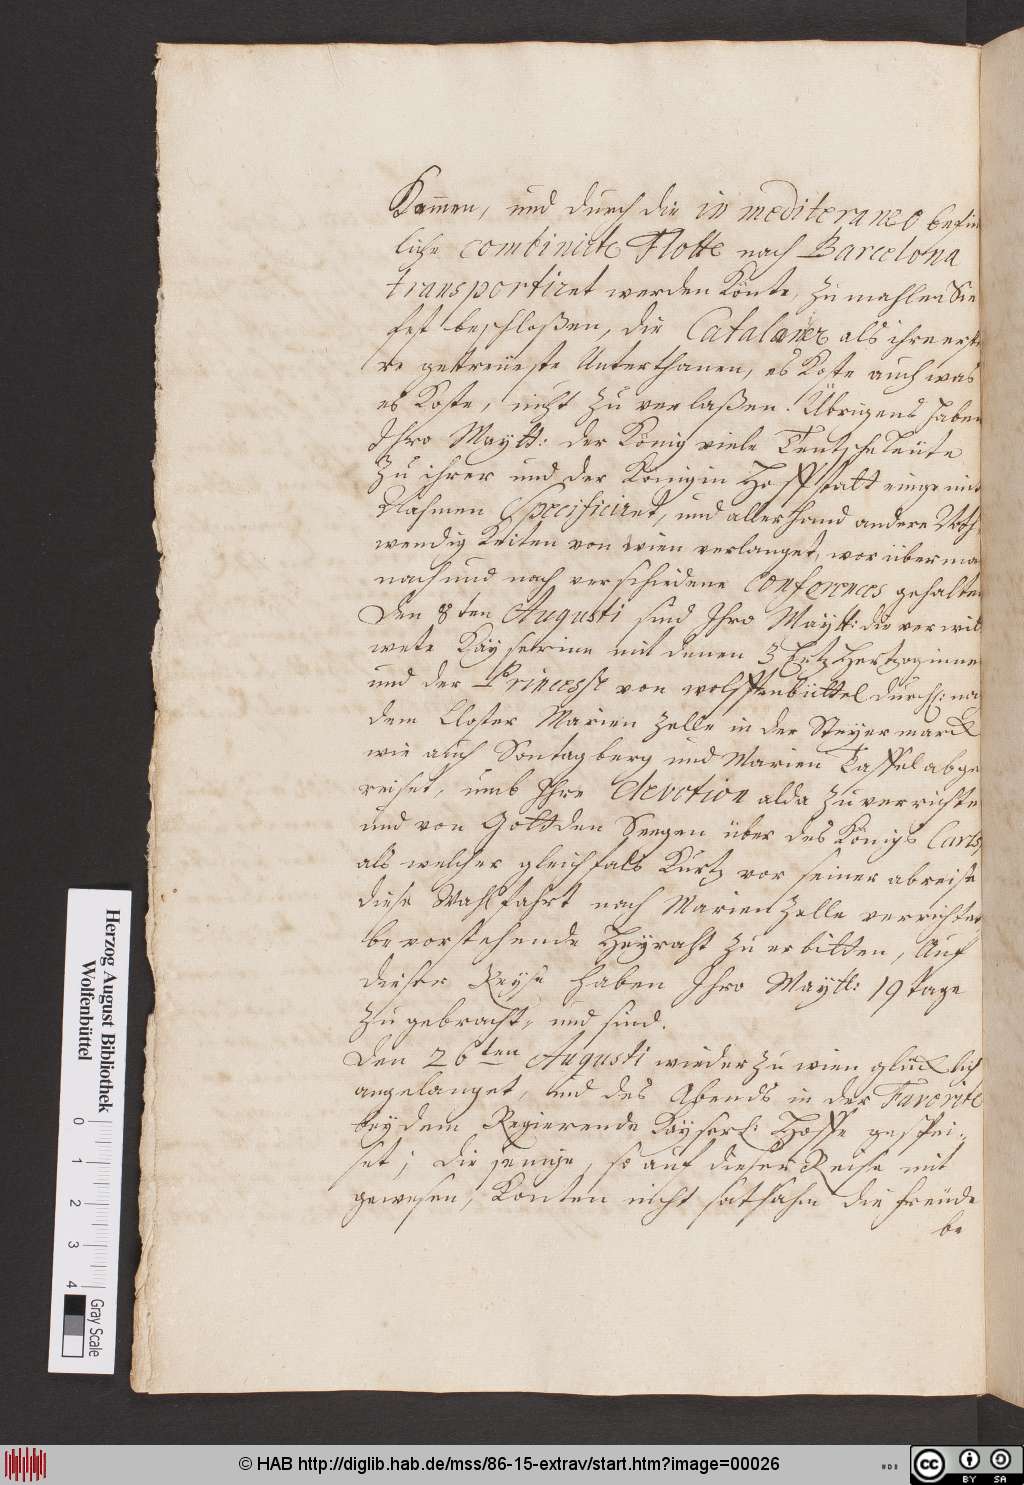 Kommen, und durch die in mediteraneo befin
liche combinirte Flotte nach Barcelona
transportiret werden Könte, zumahlen Sie
fest beschloßen, die Catalaner als ihre erste
re gettreüeste Unterthanen, es Koste auch was
es Koste, nicht zu verlaßen. Übrigens haben
Ihro Maytt: der König viele Teutsche Leüte
Zu ihrer und der Königin Hoffstatt einge mit
Nahmen Specificiret, und allerhand andere Noth
wendig Keiten von wien verlanget, worüber ma
nach und nach verschiedene Conferences gehalten
Den 8ten Augusti sind Ihro Maytt: die verwit
wete Käyserinn mit denen 3 Ertz Hertzoginnen
und der Princesse von wolffenbüttel durchl: na
dem Closter Marien Zelle in der Steyermarck
wie auch Sontagberg und Marien Taffel abge
reiset, umb Ihre devotion alda zu verrichten
und von Gott den Seegen über des Königs Carls,
als welcher gleichfals Kurtz vor seiner abreise
diese Wahlfahrt nach Marien Zelle verrichtet,
bevorstehende Heyraht zu erbitten, Auf
dieser Reyse haben Ihro Maytt: 19 tage
Zugebracht, und sind.
Den 26ten Augusti wieder zu wien glücklich
angelanget, und des Abends in der Favorite
bey dem Regierende Käyserl: Hoffe gespei-
set; die jenige, so auf dieser Reise mit
gewesen, Konten nicht satsahm die freüde
be
Herzog August Bibliothek
Wolfenbüttel
0 1 2 3 4
Gray Scale
© HAB http://diglib.hab.de/mss/86-15-extrav/start.htm?image=00026
cc BY SA